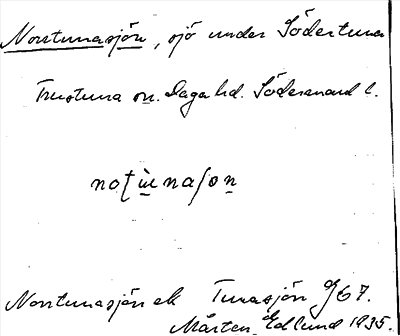 Norrtunasjön, sjö under Södertuna
Frustuna sn. Daga hd. Södermanl. l.
Norrtunasjön el. Tunasjön 9/67.
Mårten Edlund 1935.